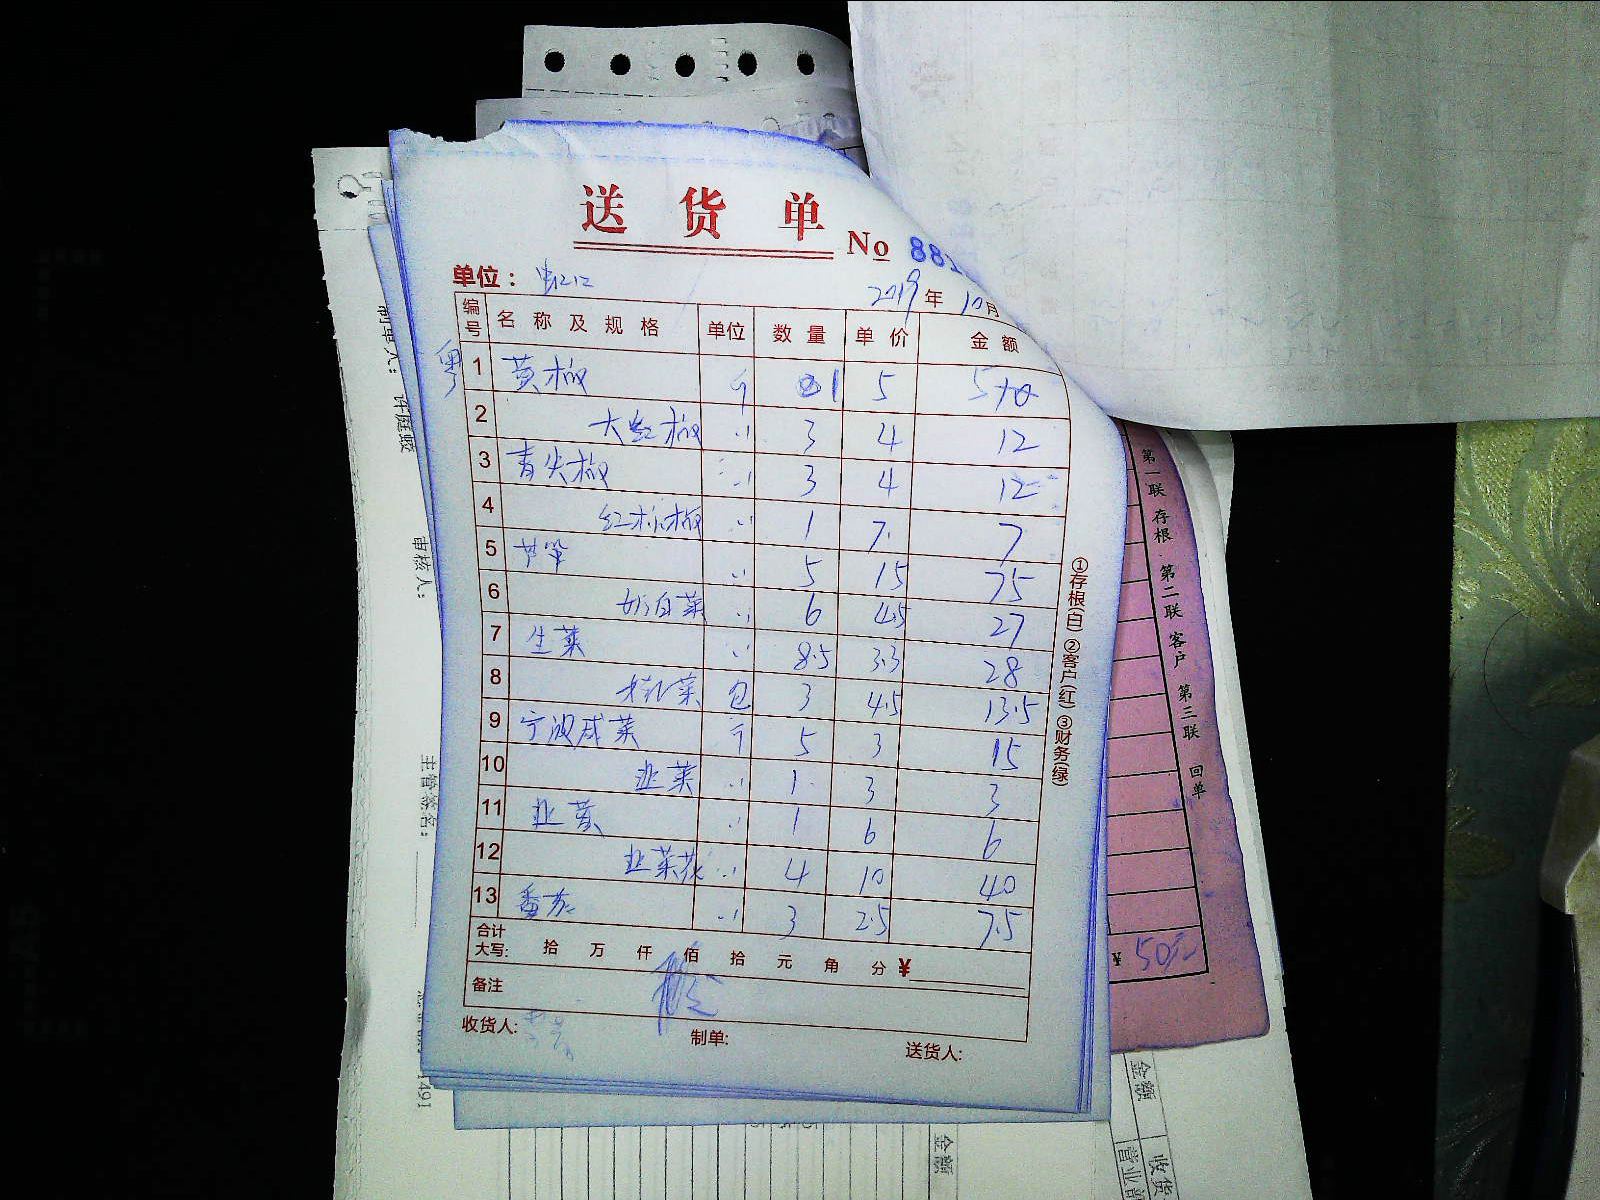 送货单
No 881
单位： 虹江
2019 年 10 月
编号 名称及规格 单位 数量 单价 金额
粤
1 黄椒 斤 1 5 5
2 大红椒 〃 3 4 12
3 青尖椒 〃 3 4 12
4 红杭椒 〃 1 7 7
5 芦笋 〃 5 15 75
6 奶白菜 〃 6 4.5 27
7 生菜 〃 8.5 3.3 28
8 包 3 4.5 13.5
9 宁波咸菜 斤 5 3 15
10 韭菜 〃 1 3 3
11 韭黄 〃 1 6 6
12 韭菜花 〃 4 10 40
13 番茄 〃 3 2.5 7.5
合计大写: 拾 万 仟 佰 拾 元 角 分 ¥
备注
收货人: 制单: 送货人:
①存根(白) ②客户(红) ③财务(绿)
第一联 存根 第二联 客户 第三联 回单
¥ 50元
制单人： 许庭蛟
审核人：
主管签名：
1491
金额
金额
收货
营业部